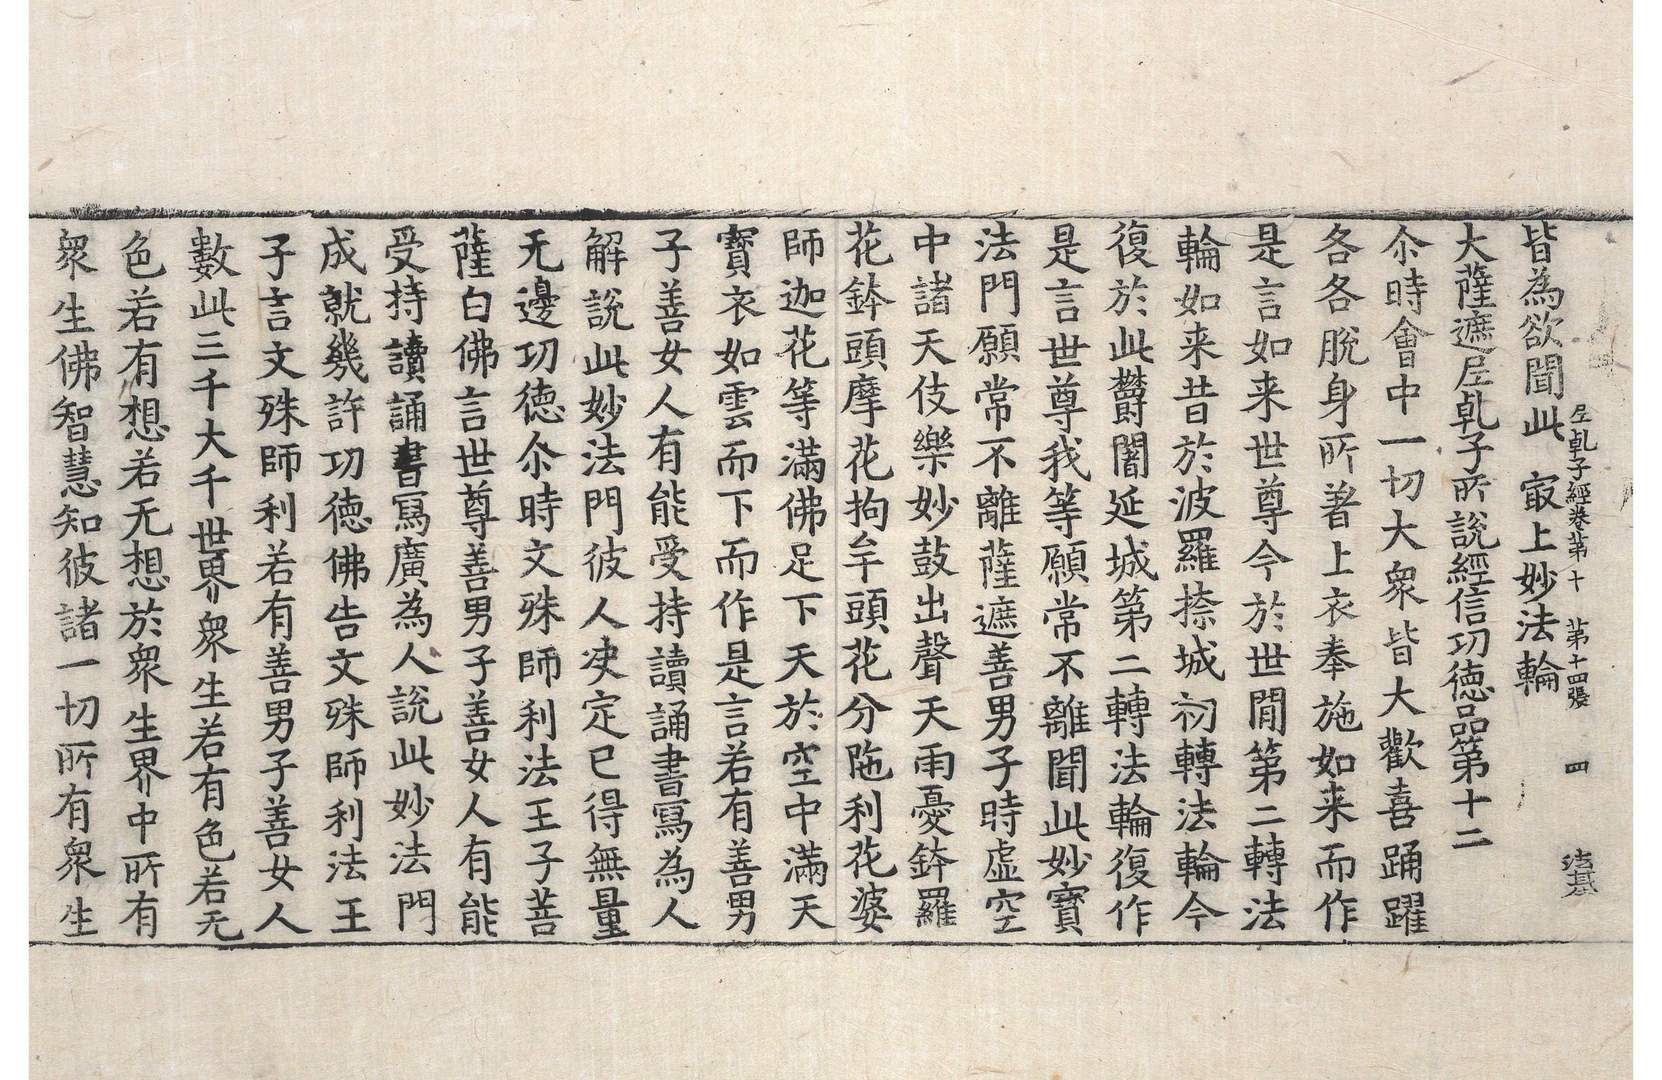 皆為欲聞此 㝡上妙法輪
大薩遮𡰱乹子所説經信功徳品第十二
尒時會中一切大衆皆大歡喜踊躍
各各脫身所著上衣奉施如来而作
是言如来世尊今於世閒第二轉法
輪如来昔於波羅㮈城初轉法輪今
復於此欝闍延城第二轉法輪復作
是言世尊我等願常不離聞此妙寶
法門願常不離薩遮善男子時虛空
中諸天伎樂妙鼓出聲天雨憂鉢羅
花鉢頭摩花拘牟頭花分陁利花婆
師迦花等滿佛足下天於空中滿天
寶衣如雲而下而作是言若有善男
子善女人有能受持讀誦書寫為人
解説此妙法門彼人决定已得無量
无邊功徳尒時文殊師利法王子菩
薩白佛言世尊善男子善女人有能
受持讀誦書寫廣為人説此妙法門
成就幾許功徳佛告文殊師利法王
子言文殊師利若有善男子善女人
數此三千大千世界衆生若有色若无
色若有想若无想於衆生界中所有
衆生佛智慧知彼諸一切所有衆生
𡰱乹子經卷第十 第十四張 四